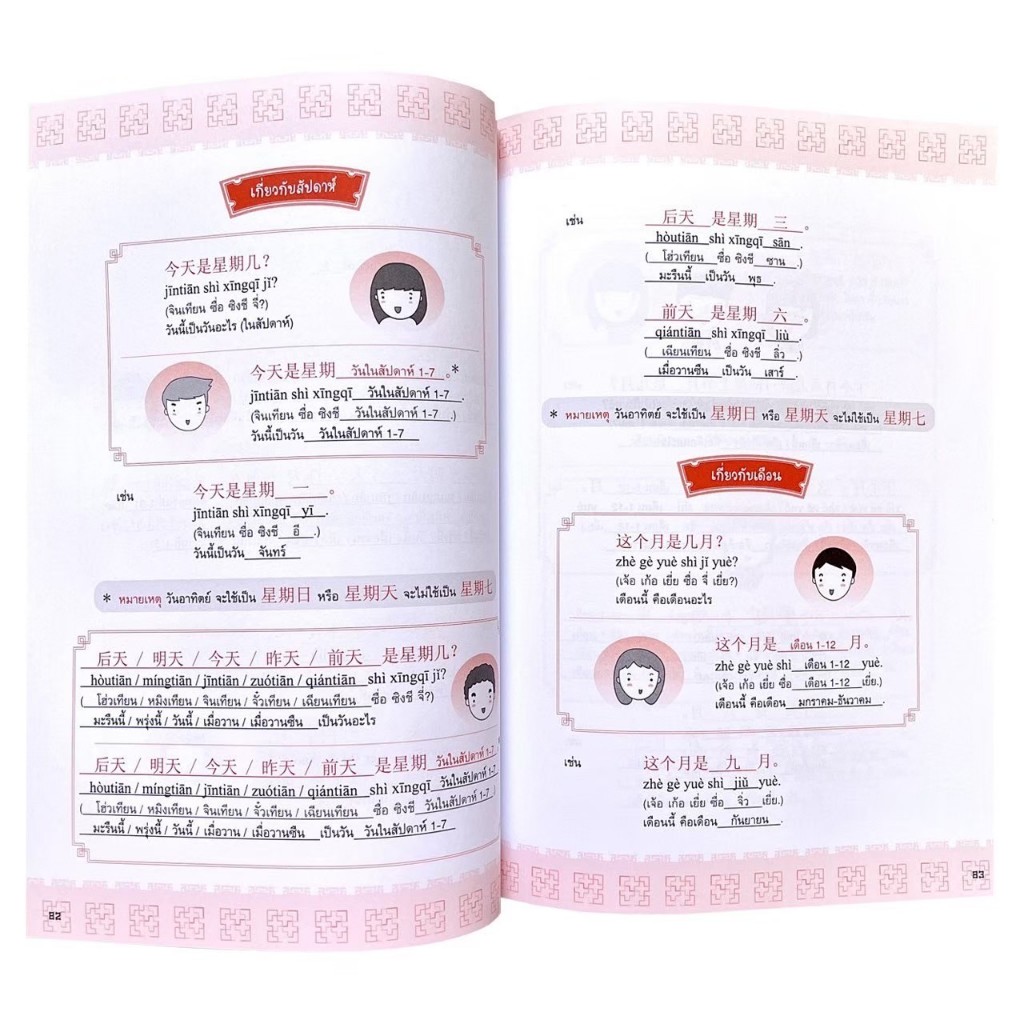 เกี่ยวกับสัปดาห์
今天是星期几？
jīntiān shì xīngqī jǐ?
(จินเทียน ซื่อ ซิงชี จี่?)
วันนี้เป็นวันอะไร (ในสัปดาห์)
今天是星期 วันในสัปดาห์ 1-7 。*
jīntiān shì xīngqī วันในสัปดาห์ 1-7 .
(จินเทียน ซื่อ ซิงชี วันในสัปดาห์ 1-7 .)
วันนี้เป็นวัน วันในสัปดาห์ 1-7
เช่น 今天是星期 一 。
jīntiān shì xīngqī yī .
(จินเทียน ซื่อ ซิงชี อี .)
วันนี้เป็นวัน จันทร์
* หมายเหตุ วันอาทิตย์ จะใช้เป็น 星期日 หรือ 星期天 จะไม่ใช้เป็น 星期七
后天 / 明天 / 今天 / 昨天 / 前天 是星期几？
hòutiān / míngtiān / jīntiān / zuótiān / qiántiān shì xīngqī jǐ?
( โฮ่วเทียน / หมิงเทียน / จินเทียน / จั๋วเทียน / เฉียนเทียน ซื่อ ซิงชี จี่?)
มะรืนนี้ / พรุ่งนี้ / วันนี้ / เมื่อวาน / เมื่อวานซืน เป็นวันอะไร
后天 / 明天 / 今天 / 昨天 / 前天 是星期 วันในสัปดาห์ 1-7 。*
hòutiān / míngtiān / jīntiān / zuótiān / qiántiān shì xīngqī วันในสัปดาห์ 1-7 .
( โฮ่วเทียน / หมิงเทียน / จินเทียน / จั๋วเทียน / เฉียนเทียน ซื่อ ซิงชี วันในสัปดาห์ 1-7 .)
มะรืนนี้ / พรุ่งนี้ / วันนี้ / เมื่อวาน / เมื่อวานซืน เป็นวัน วันในสัปดาห์ 1-7
82
เช่น 后天 是星期 三 。
hòutiān shì xīngqī sān .
( โฮ่วเทียน ซื่อ ซิงชี ซาน .)
มะรืนนี้ เป็นวัน พุธ .
前天 是星期 六 。
qiántiān shì xīngqī liù .
( เฉียนเทียน ซื่อ ซิงชี ลิ่ว .)
เมื่อวานซืน เป็นวัน เสาร์ .
* หมายเหตุ วันอาทิตย์ จะใช้เป็น 星期日 หรือ 星期天 จะไม่ใช้เป็น 星期七
เกี่ยวกับเดือน
这个月是几月？
zhè gè yuè shì jǐ yuè?
(เจ้อ เก้อ เยี่ย ซื่อ จี่ เยี่ย?)
เดือนนี้ คือเดือนอะไร
这个月是 เดือน 1-12 月。
zhè gè yuè shì เดือน 1-12 yuè.
(เจ้อ เก้อ เยี่ย ซื่อ เดือน 1-12 เยี่ย.)
เดือนนี้ คือเดือน มกราคม-ธันวาคม .
เช่น 这个月是 九 月。
zhè gè yuè shì jiǔ yuè.
(เจ้อ เก้อ เยี่ย ซื่อ จิ่ว เยี่ย.)
เดือนนี้ คือเดือน กันยายน .
83